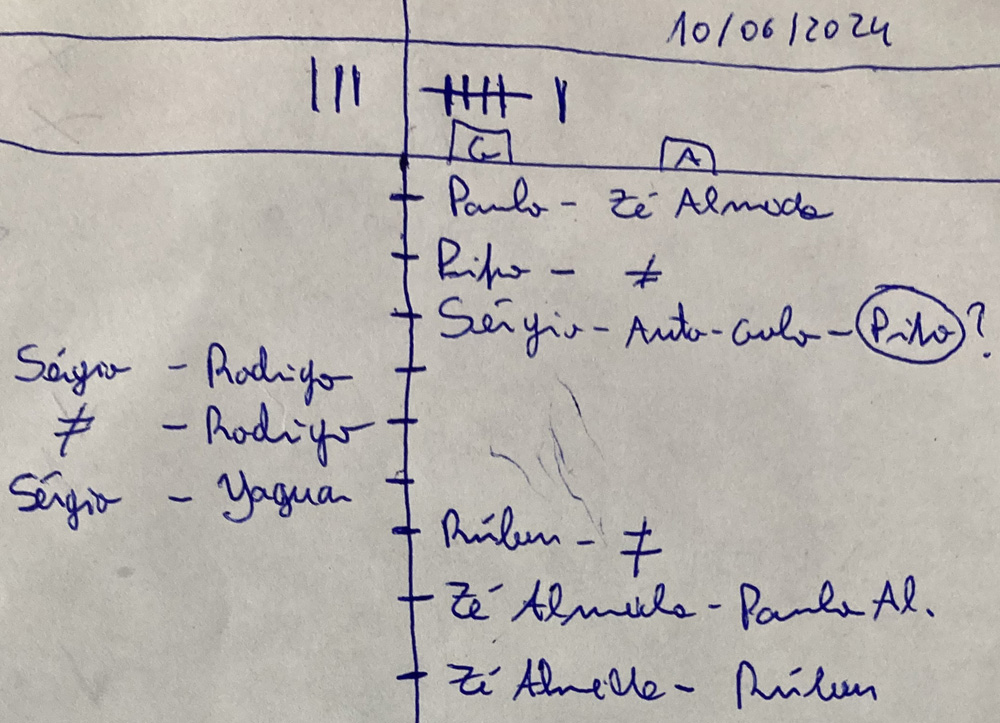 10/06/2024
G A
Paulo - Zé Almeida
Pipo - ≠
Sérgio - Auto-Golo - Pipo?
Sérgio - Rodrigo
≠ - Rodrigo
Sérgio - Yaguan
Rúben - ≠
Zé Almeida - Paulo Al.
Zé Almeida - Rúben